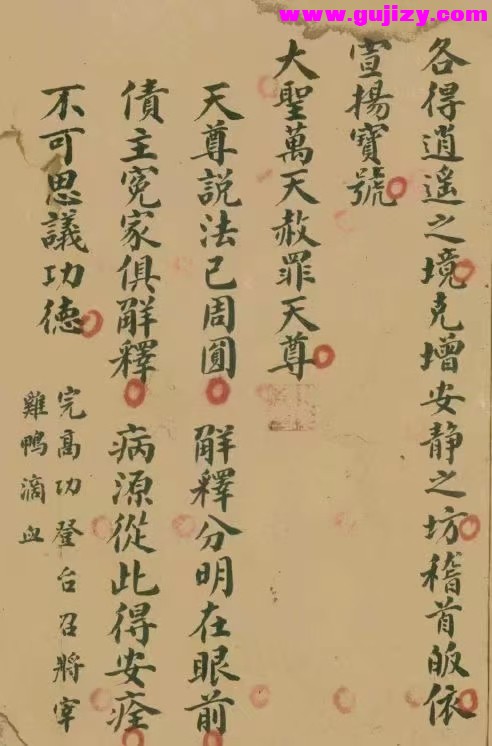 www.gujizy.com
各得逍遥之境克增安静之坊稽首皈依
宣揚寶號
大聖萬天赦罪天尊
天尊説法已周圓 解釋分明在眼前
債主冤家俱解釋 病源從此得安痊
不可思議功德
完高功登台召將宰
雞鴨滴血